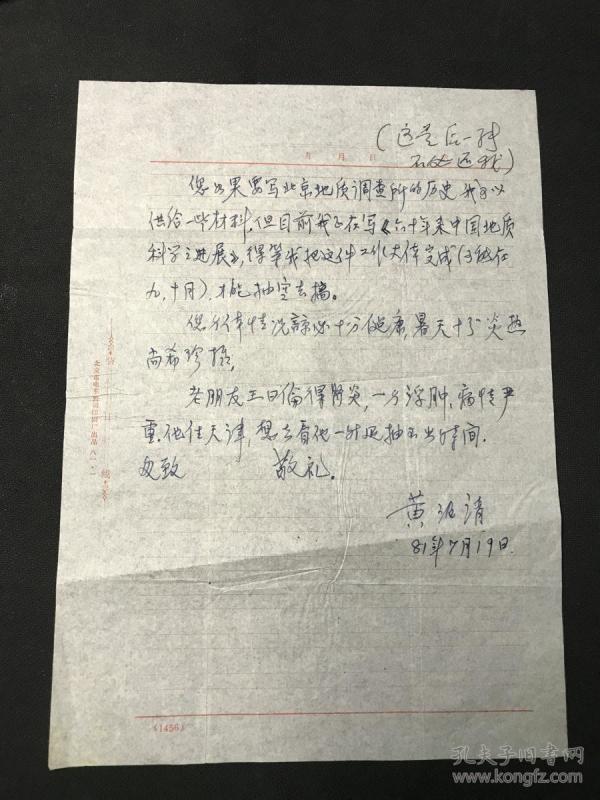 (这是后一封
不必还我)
月 日
您如果要写北京地质调查所的历史 我可以
供给一些材料,但目前我正在写《六十年来中国地质
科学之进展》,得等我把这件工作大体完成(可能在
九、十月),才能抽空去搞。
您身体情况谅必十分健康,暑天十分炎热
尚希珍摄。
老朋友王曰伦得肾炎,一身浮肿,病情严
重,他住天津,想去看他一时还抽不出时间.
匆致 敬礼.
黄汲清
81年7月19日.
(1456)
孔夫子旧书网
www.kongfz.com